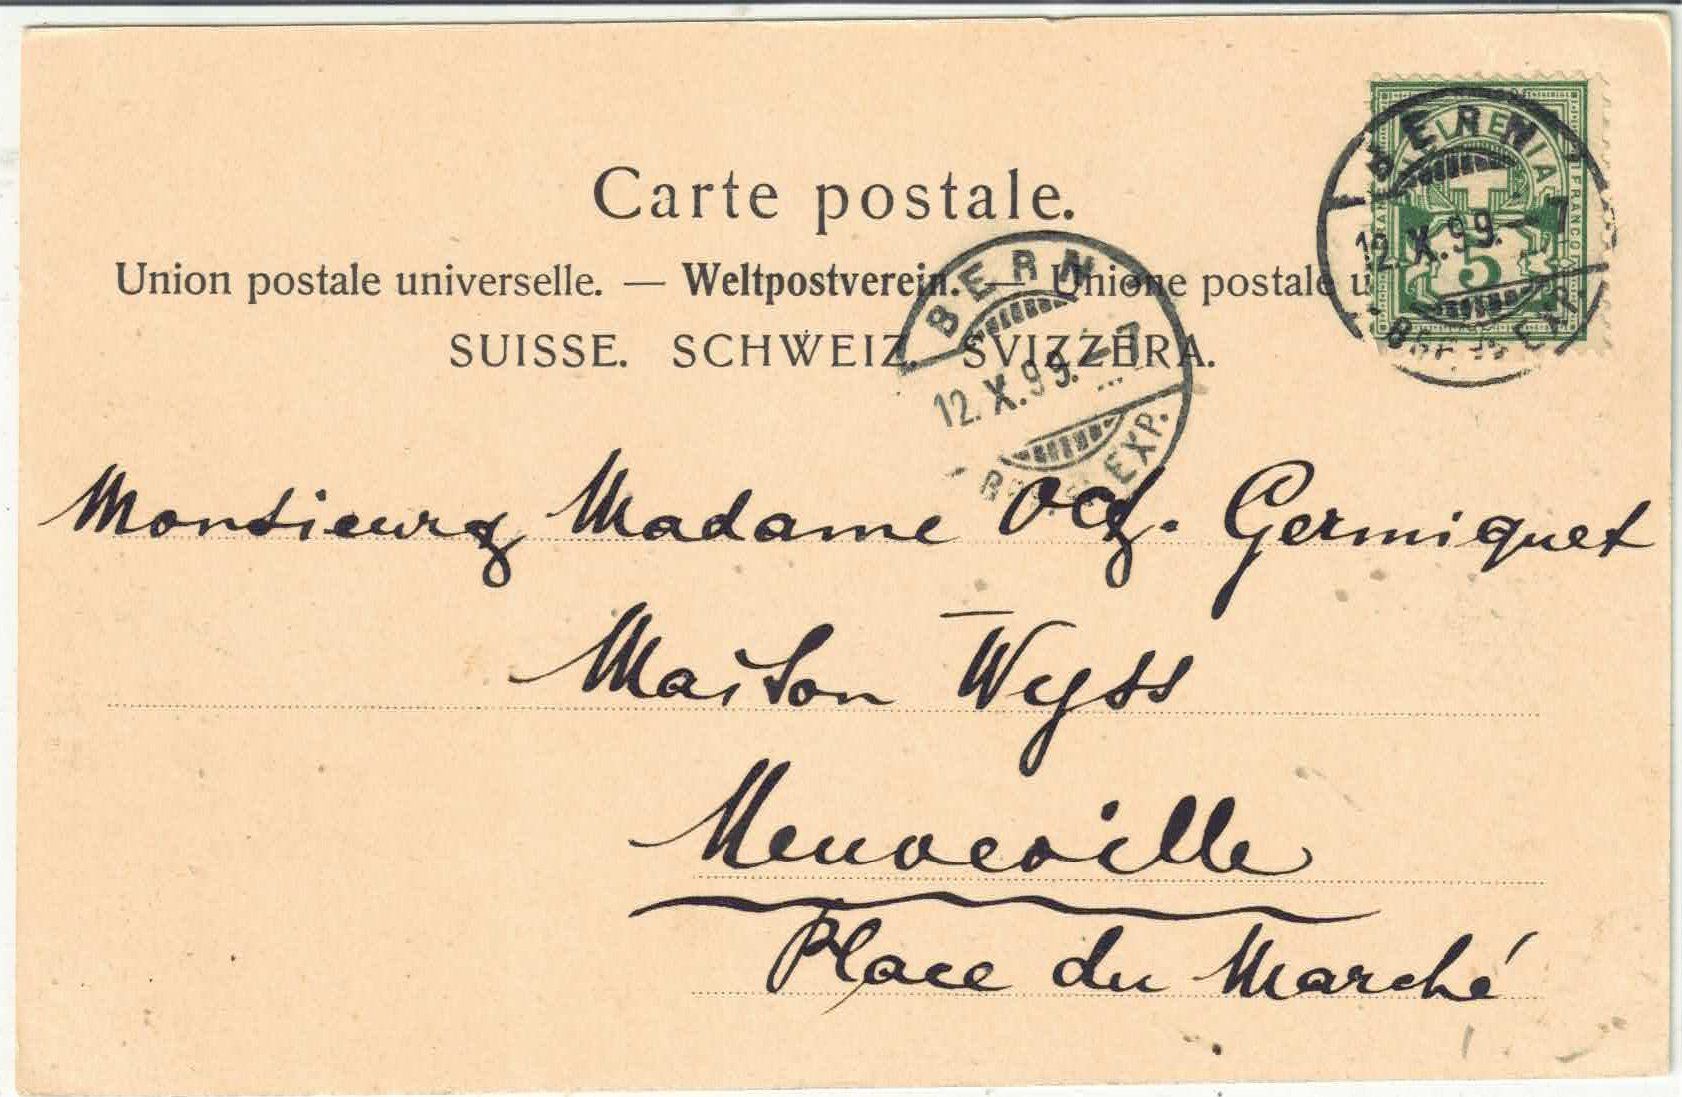 Carte postale.
Union postale universelle. — Weltpostverein. — Unione postale u
SUISSE. SCHWEIZ. SVIZZERA.
HELVETIA
FRANCO
5
BERN
12. X. 99. – 7
EXP.
BERN
12. X. 99. – 7
EXP.
Monsieur & Madame Germiquet
Maison Wyss
Neuveville
Place du Marché